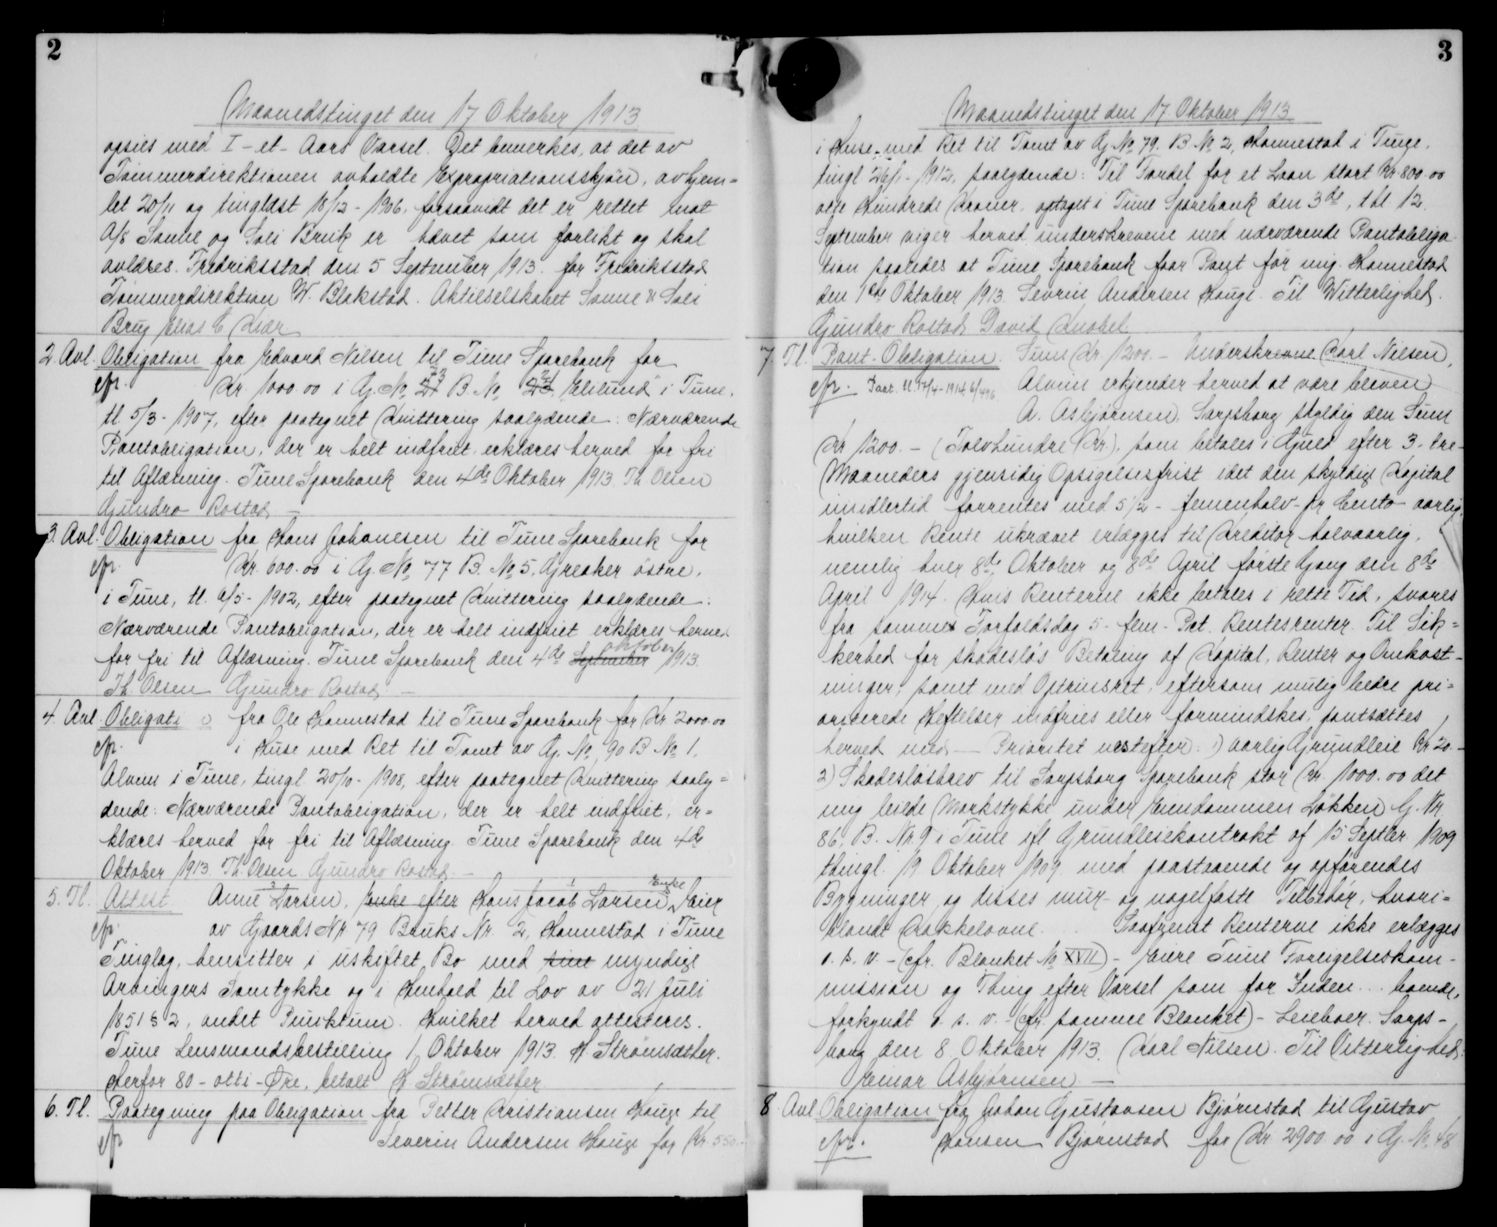 2
Maanedstinget den 17 Oktober 1913
opsies med I - et - Aars Varsel. Det bemerkes, at det av
Tømmerdirektionen avholdte Expropriationsskjøn, avhjem=
let 20/11 og tinglæst 18/12 - 1906, forsaavidt det er rettet mot
A/S Sanne og Soli Bruk er hævet som forlikt og skal
avldres. Fredriksstad den 5 September 1913. for Fredriksstad
Tømmerdirektion W. Blakstad. Aktieselskabet Sanne & Soli
Brug Elias C Kiær
2 Avl. Obligation fra Edvard Nilsen til Tune Sparebank for
Kr 1000.00 i G. No B. No Elilund" i Tune,
tl 5/3 - 1907, efter paategnet Kvittering saalydende: Nærværende
Pantobligation, der er helt indfriet erklæres herved for fri
til Aflæsning. Tune Sparebank den 4de Oktober 1913 Th Olsen
Gjundro Rostad -
3. Avl. Obligation fra Hans Johansen til Tune Sparebank for
Kr. 600.00 i G. No 77 B. No 5, Greaker østre,
i Tune, tl. 6/5 - 1902, efter paategnet Kvittering saalydende:
Nærværende Pantobligation, der er helt indfriet erklæres herved
for fri til Aflæsning. Tune Sparebank den 4de September Oktober 1913.
Th. Olsen Gjundro Rostad. -
4. Avl. Obligati o fra Ole Hannestad til Tune Sparebank for Kr 2000.00
i Huse med Ret til Tomt av G. No 90 B No 1.
Alvim i Tune, tingl 20/10 - 1908, efter paategnet Kvittering saaly=
dende: Nærværende Pantobligation, der er helt indfriet, er=
klæres herved for fri til Aflæsning Tune Sparebank den 4de
Oktober 1913. Th. Olsen Gjundro Rostad. -
5. Tl. Attest. Anne Larsen, Enke efter Hans Jacob Larsen, Enke Eier
av Gaards Nr. 79 Bruks Nr. 2, Hannestad i Tune
Tinglag, hensitter i uskiftet Bo med sine myndige
Arvingers Samtykke og i Henhold til Lov av 21 Juli
1851 § 2, andet Punktum. Hvilket herved attesteres.
Tune Lensmandsbestilling 1 Oktober 1913. H Strømsæther.
Herfor 80 - otti - Øre, betalt H. Strømsæther
6. Tl. Paategning paa Obligation fra Petter Kristiansen Hauge til
Severin Andersen Hauge for Kr. 550.-
3
Maanedstinget den 17 Oktober 1913
i Huse med Ret til Tomt av G. No 79. B No 2, Hannestad i Tune,
tingl 26/1 - 1912, saalydende: Til Fordel for et Laan stort Kr 800.00
otte Hundrede Kroner, optaget i Tune Sparebank den 3de, tbl 12
September viger herved underskrevene med nærværende Pantobliga
tion saaledes at Tune Sparebank faar Pant for mig. Hannestad
den 1ste Oktober 1913. Severin Andersen Hauge. Til Witterlighed.
Gjundro Rostad, David Knobel
7. Tl. Pant-Obligation. Sum Kr 1200.- Underskrevne Karl Nilsen,
Alvim erkjender herved at være bleven
A. Asbjørnsen, Sarpsborg skyldig den Sum
Kr 1200.- (Tolvhundre Kr), som betales i Guld efter 3 - tre -
Maaneders gjensidig Opsigelsesfrist idet den skyldige Kapital
imidlertid forrentes med 5 1/2 - femenhalv - pr Cento aarlig,
hvilken Rente ukrævet erlægges til Kreditor halvaarlig,
nemlig hver 8de Oktober og 8de April første Gang den 8de
April 1914. Hvis Renterne ikke betales i rette Tid, svares
fra sammes Forfaldsdag 5 - fem - Pct. Rentesrenter. Til Sik=
kerhed for skadesløs Betaling af Kapital, Renter og Omkost-
ninger, samt med Optrinsret, eftersom mulig bedre pri=
oriterede Heftelser indfries eller formindskes, pantsættes
herved med - Prioritet næstefter: 1) aarlig Grundleie Kr 20.-
2) Skadesløsbrev til Sarpsborg Sparebank stor Kr. 1000.00 det
mig leiede Markstykke under Eiendommen Løkken G. Nr
86, B. Nr. 9 i Tune ifl Grundleiekontrakt af 15 Septbr 1909
thingl. 19 Oktober 1909, med paastaaende og opførendes
Bygninger, og disses mur- og nagelfaste Tilbehør, hvori=
blandt Kakkelovne. Saafremt Renterne ikke erlægges
o. s. v. - (cfr. Blanket No XVII) - være Tune Forligelseskom-
mission og Thing efter Varsel som for Inden... boende,
forkyndt o. s. v. - (cfr samme Blanket) - Leieboer. Sarps-
borg den 8 Oktober 1913. Karl Nilsen. Til Vitterlighed:
Einar Asbjørnsen -
8 Avl. Obligation fra Johan Gustavsen Bjørnstad til Gustav
Hansen Bjørnstad for Kr 2900.00 i G. No. 48